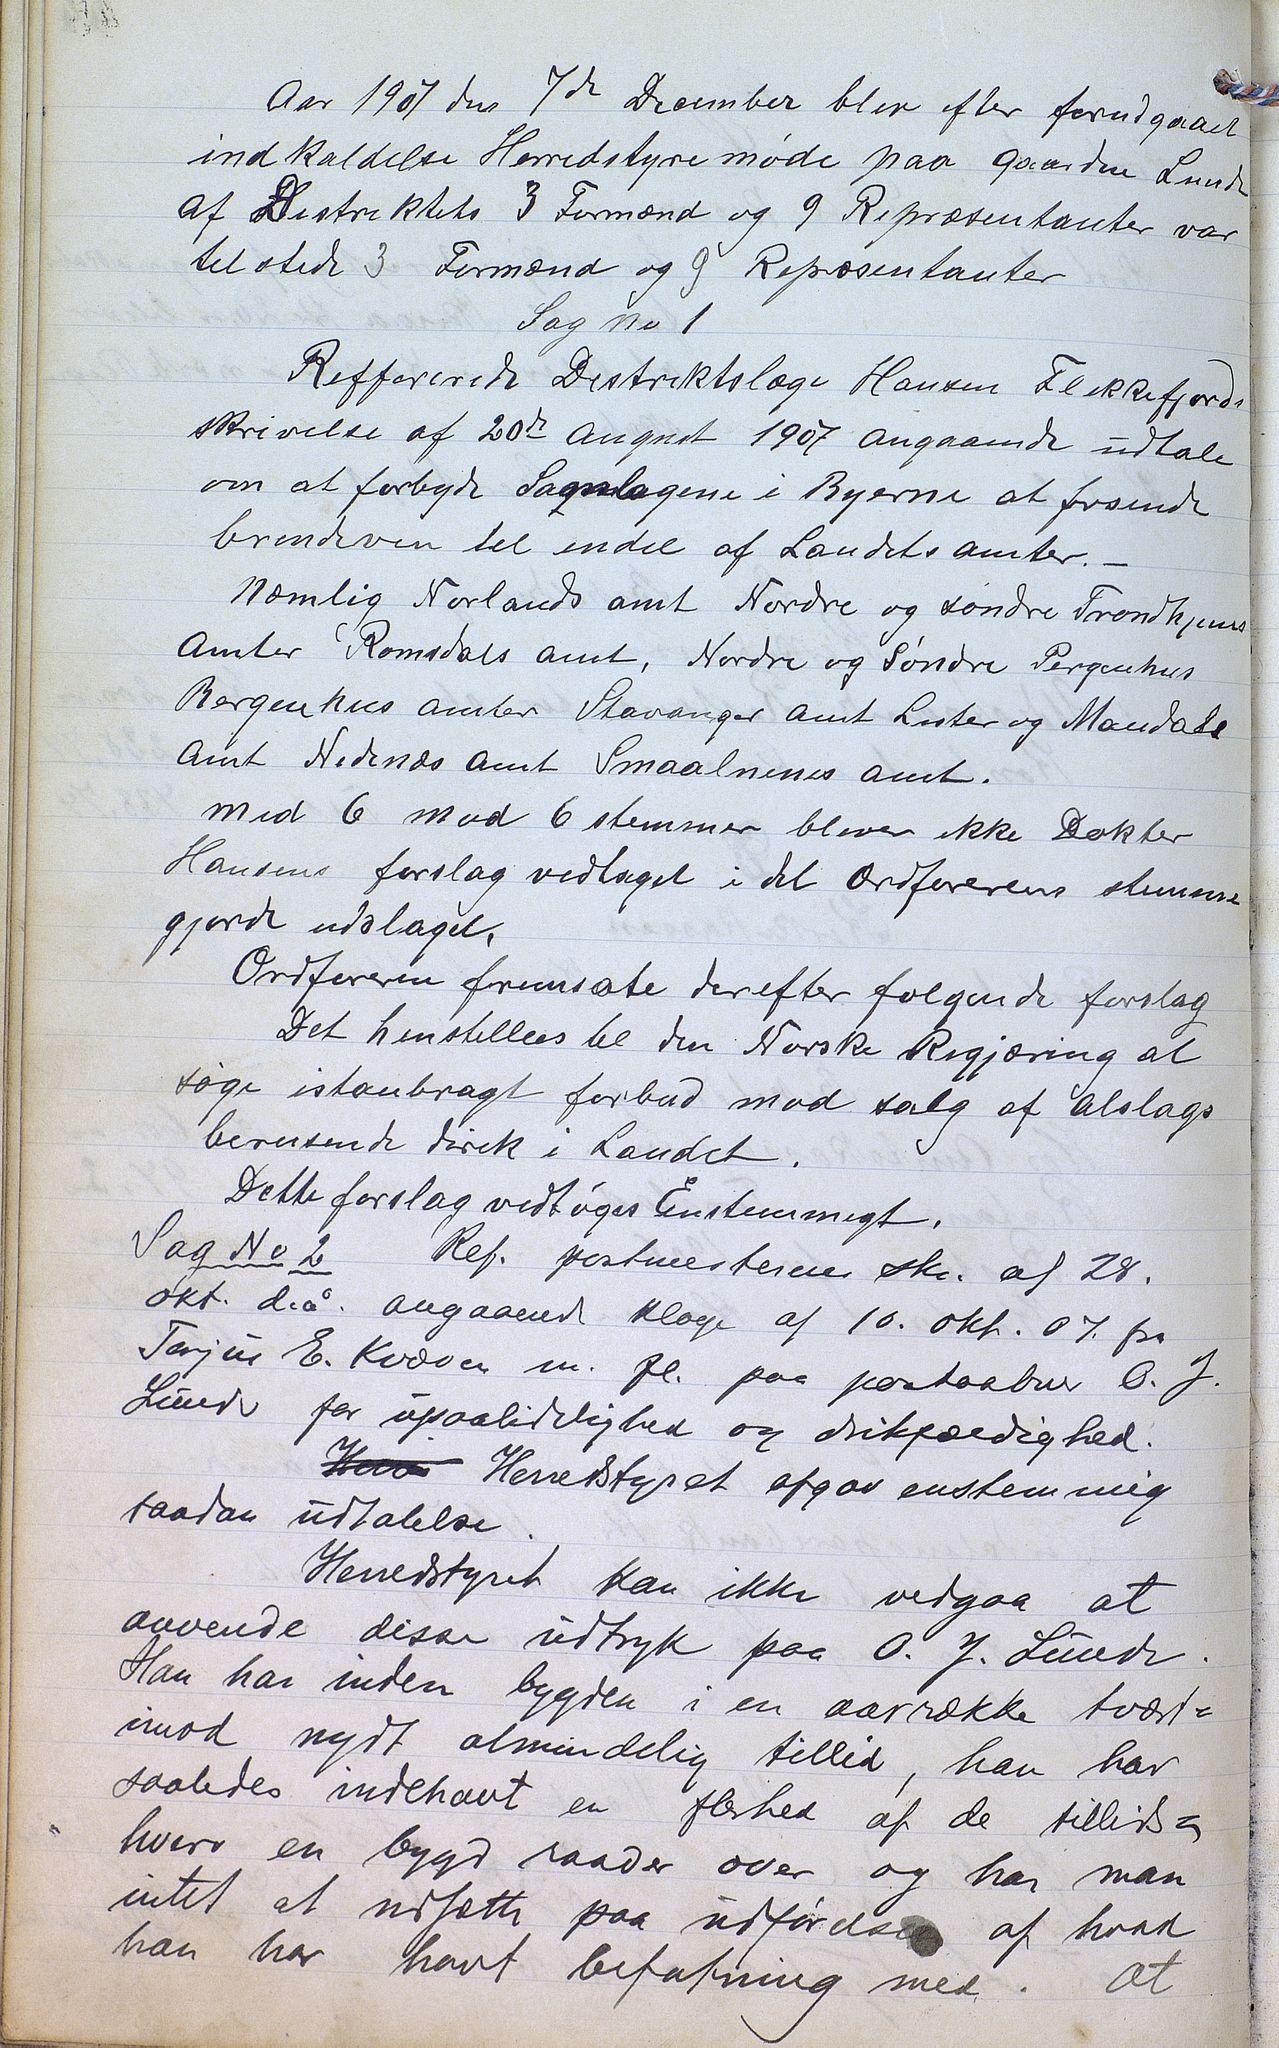 Aar 1907 den 7de December blev efter forudgaaet
indkaldelse Herredstyremøde paa gaarden Lunde
af Distriktets 3 Formænd og 9 Repræsentanter var
tilstede 3 Formænd og 9 Repræsentanter
Sag No 1
Reffererede Distriktslæge Hansen Flekkefjords
skrivelse af 20de August 1907 angaaende udtale
om at forbyde Samlagene i Byerne at frsende
brendeven til endel af Landets amter. –
Næmlig Norlands amt Nordre og søndre Trondhjems
Amter Romsdals amt, Nordre og Søndre Pergenhus
Bergenhus amter Stavanger Amt Lister og Mandals
Amt Nedenæs Amt Smaalnenes amt.
Med 6 mod 6 stemmer blever ikke Dokter
Hansens forslag vedtaget i det Ordførerens stemme
gjorde udslaget.
Ordføreren fremsate derefter følgende forslag
Det henstillees til den Norske Regjæring at
søge istanbragt forbud mod salg af alslags
berusende dirck i Landet.
Dette forslag vedtøges Enstemmigt.
Sag No 2 Ref. postmesterens skr. af 28.
okt. d.å. angaaende klage af 10. okt. 07. fra
Tarjus E. Kvæven m. fl. paa postaabner O. J.
Lunde for upaalidelighed og drikfældighed.
Herredstyret afgav enstemmig
saadan udtalelse.
Herredstyret kan ikke vedgaa at
anvende disse udtryk paa O. J. Lunde.
Han har inden bygden i en aarrække tvært=
imod nydt almindelig tillid, han har
saaledes indehavt en flerhed af de tillids=
hverv en bygd raader over og har man
intet at udsætte paa udførelsen af hvad
han har havt befatning med. At